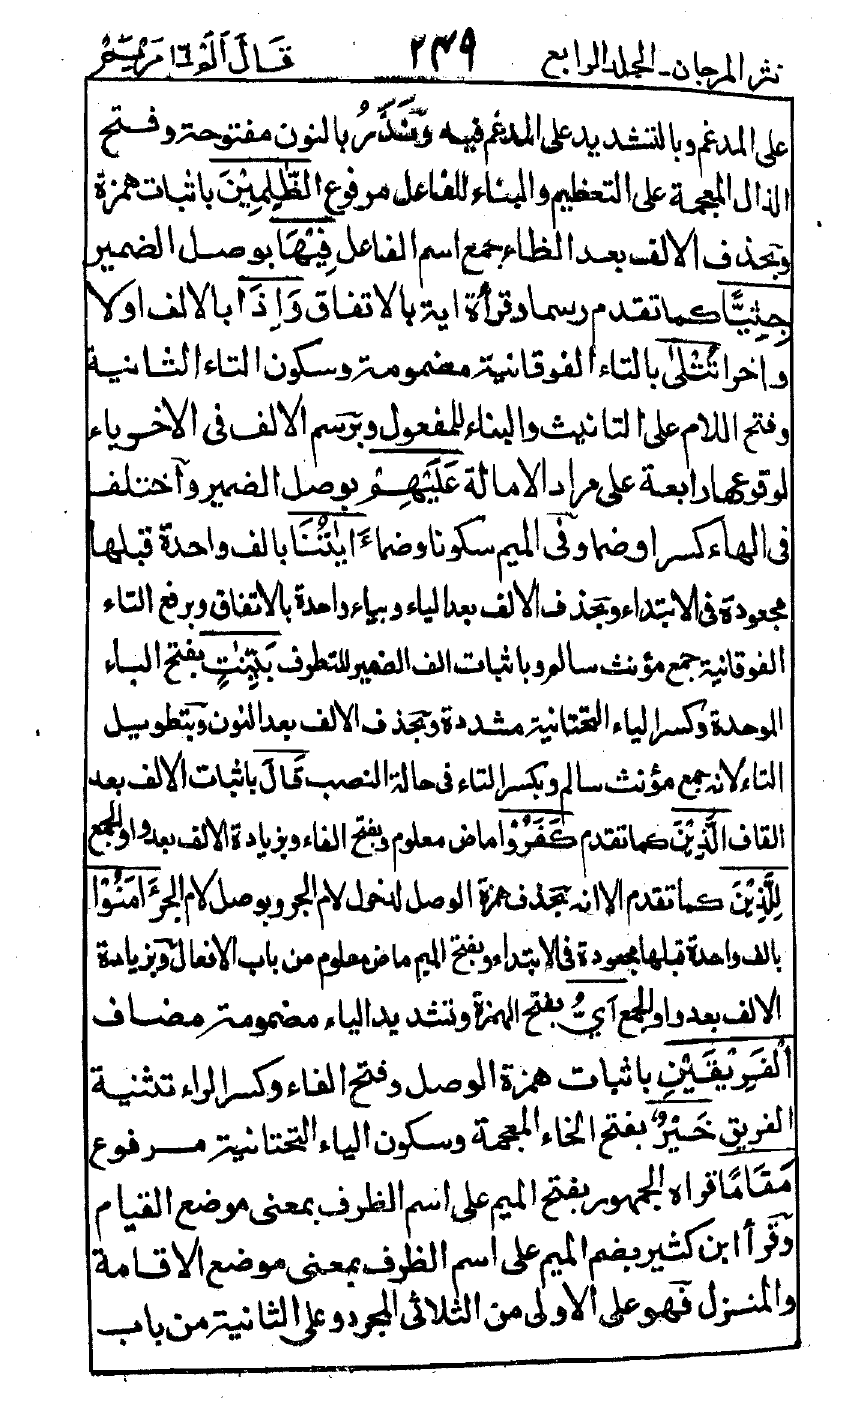 نثر المرجان - الجلد الرابع ٢٤٩ قَالَ اَلَمْ ١٦ مَرْيَم
على المدغم وبالتشديد على المدغم فيه وَّنَذَرُ بالنون مفتوحة وفتح
الذال المعجمة على التعظيم والبناء للفاعل مرفوع الظّٰلِمِيْنَ باثبات همزة
وبحذف الالف بعد الظاء جمع اسم الفاعل فِيْهَا بوصل الضمير
جِثِيًّا كما تقدم رسما وقرأة اية بالاتفاق وَاِذَا بالالف اولا
واخرا تُتْلٰى بالتاء الفوقانية مضمومة وسكون التاء الثانية
وفتح اللام على التانيث والبناء للمفعول وبرسم الالف فى الاخر ياء
لوقوعها رابعة على مراد الامالة عَلَيْهِمْ بوصل الضمير واختلف
فى الهاء كسرا وضما وفى الميم سكونا وضما ءَايٰتُنَا بالف واحدة قبلها
مجعودة فى الابتداء وبحذف الالف بعد الياء وبياء واحدة بالاتفاق وبرفع التاء
الفوقانية جمع مؤنث سالم وباثبات الف الضمير للتطرف بَيِّنٰتٍ بفتح الباء
الموحدة وكسر الياء التحتانية مشددة وبحذف الالف بعد النون وبتطويل
التاء لانه جمع مؤنث سالم وبكسر التاء فى حالة النصب قَالَ باثبات الالف بعد
القاف الَّذِيْنَ كما تقدم كَفَرُوْا ماض معلوم وبفتح الفاء وبزيادة الالف بعد واو الجمع
لِلَّذِيْنَ كما تقدم الا انه بحذف همزة الوصل لدخول لام الجر وبوصل لام الجر ءَامَنُوْا
بالف واحدة قبلها مجعودة فى الابتداء وبفتح الميم ماض معلوم من باب الافعال وبزيادة
الالف بعد واو الجمع اَيُّ بفتح الهمزة وتشديد الياء مضمومة مضاف
اَلْفَرِيْقَيْنِ باثبات همزة الوصل وفتح الفاء وكسر الراء تثنية
الفريق خَيْرٌ بفتح الخاء المعجمة وسكون الياء التحتانية مرفوع
مَقَامًا قراه الجمهور بفتح الميم على اسم الظرف بمعنى موضع القيام
وقرأ ابن كثير بضم الميم على اسم الظرف بمعنى موضع الاقامة
والمنزل فهو على الاولى من الثلاثى المجرد وعلى الثانية من باب